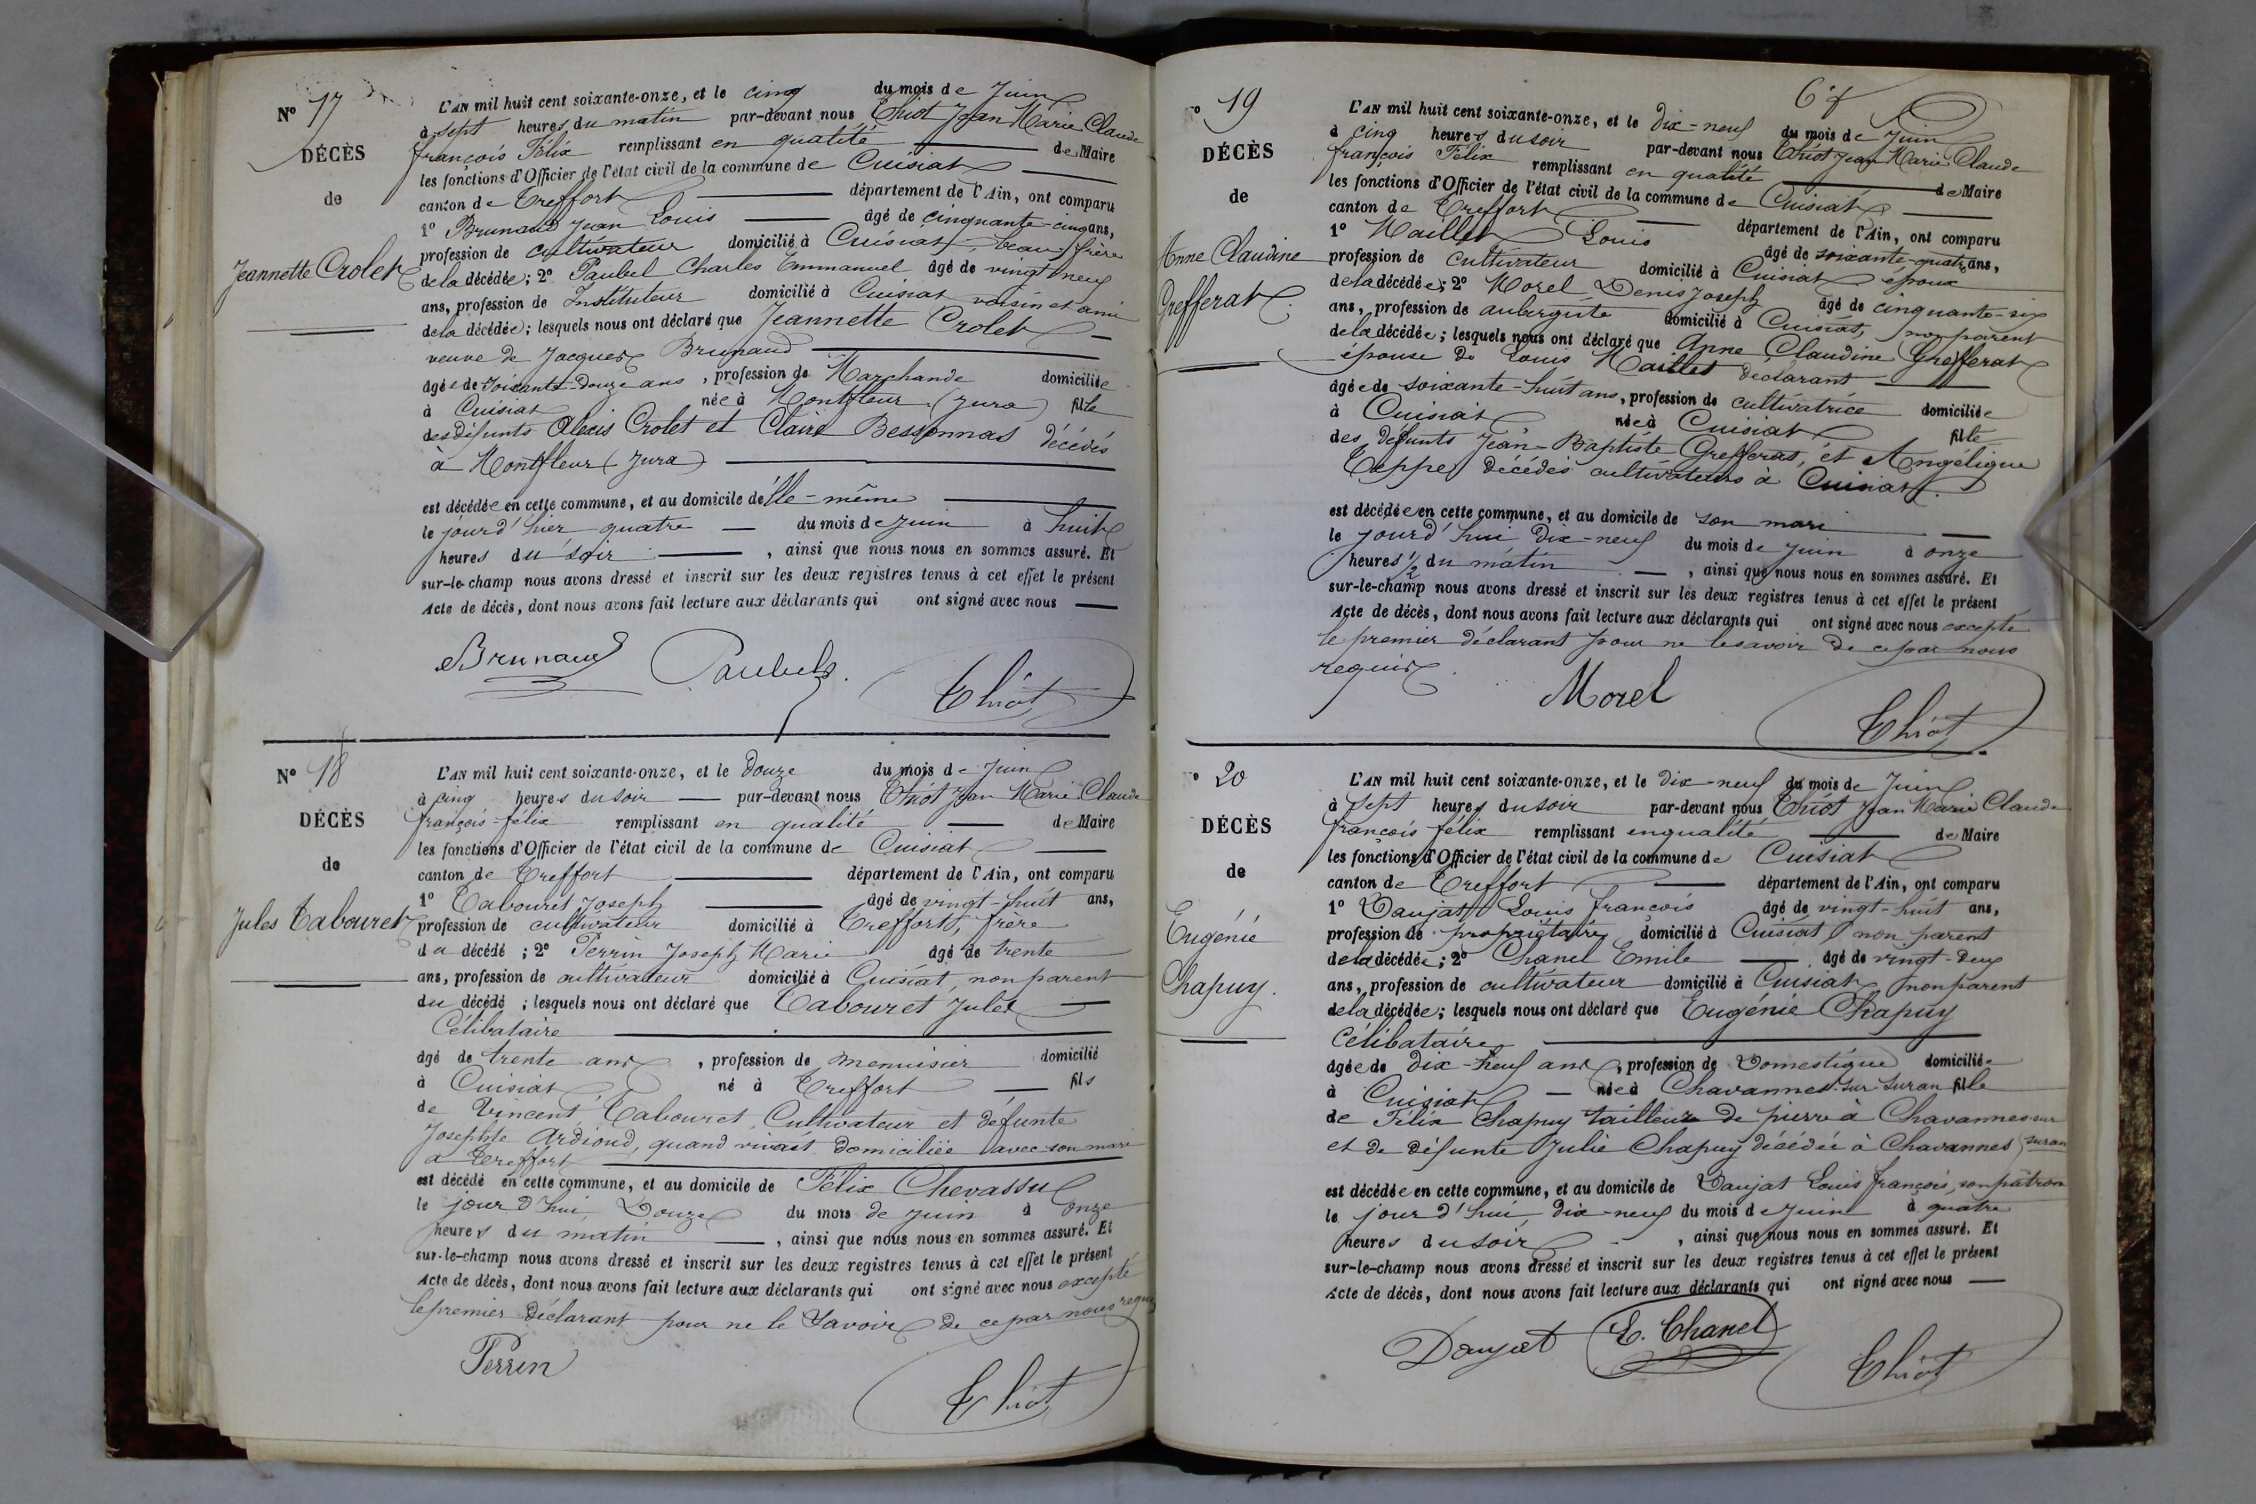 N° 17
DÉCÈS
de
Jeannette Crolet
L'AN mil huit cent soixante-onze, et le cinq du mois de Juin
à sept heures du matin par-devant nous Thiot Jean Marie Claude
françois Félix remplissant en qualité de Maire
les fonctions d'Officier de l'état civil de la commune de Cuisiat
canton de Treffort département de l'Ain, ont comparu
1° Brunaud Jean Louis âgé de cinquante-cinq ans,
profession de cultivateur domicilié à Cuisiat, beau-frère
de la décédée; 2° Paubel Charles Emmanuel âgé de vingt neuf
ans, profession de Instituteur domicilié à Cuisiat voisin et ami
de la décédée; lesquels nous ont déclaré que Jeannette Crolet
veuve de Jacques Brunaud
âgée de soixante-douze ans, profession de Marchande domiciliée
à Cuisiat née à Montfleur (Jura) fille
des défunts Alexis Crolet et Claire Bessonnas décédés
à Montfleur (Jura)
est décédée en cette commune, et au domicile d'elle-même
le jour d'hier quatre du mois de Juin à huit
heures du soir, ainsi que nous nous en sommes assuré. Et
sur-le-champ nous avons dressé et inscrit sur les deux registres tenus à cet effet le présent
Acte de décès, dont nous avons fait lecture aux déclarants qui ont signé avec nous
Brunaud Paubel Thiot
N° 18
DÉCÈS
de
Jules Tabouret
L'AN mil huit cent soixante-onze, et le Douze du mois de Juin
à cinq heures du soir par-devant nous Thiot Jean Marie Claude
françois-félix remplissant en qualité de Maire
les fonctions d'Officier de l'état civil de la commune de Cuisiat
canton de Treffort département de l'Ain, ont comparu
1° Tabouret Joseph âgé de vingt-huit ans,
profession de cultivateur domicilié à Treffort, frère
du décédé; 2° Perrin Joseph Marie âgé de trente
ans, profession de cultivateur domicilié à Cuisiat, non parent
du décédé; lesquels nous ont déclaré que Tabouret Jules
Célibataire
âgé de trente ans, profession de menuisier domicilié
à Cuisiat né à Treffort fils
de Vincent Tabouret, Cultivateur et défunte
Josephte Ardioud, quand vivait domiciliée avec son mari
à Treffort
est décédé en cette commune, et au domicile de Félix Chevassu
le jour d'hui Douze du mois de juin à onze
heures du matin, ainsi que nous nous en sommes assuré. Et
sur-le-champ nous avons dressé et inscrit sur les deux registres tenus à cet effet le présent
Acte de décès, dont nous avons fait lecture aux déclarants qui ont signé avec nous excepté
le premier déclarant pour ne le savoir de ce par nous requis
Perrin Thiot
° 19
DÉCÈS
de
Anne Claudine
Grefferat.
L'AN mil huit cent soixante-onze, et le dix-neuf du mois de Juin
à cinq heures du soir par-devant nous Thiot Jean Marie Claude
françois Félix remplissant en qualité de Maire
les fonctions d'Officier de l'état civil de la commune de Cuisiat
canton de Treffort département de l'Ain, ont comparu
1° Maillet Louis âgé de soixante-quatre ans,
profession de cultivateur domicilié à Cuisiat époux
de la décédée; 2° Morel Denis Joseph âgé de cinquante-six
ans, profession de aubergiste domicilié à Cuisiat, non parent
de la décédée; lesquels nous ont déclaré que Anne Claudine Grefferat
épouse de Louis Maillet déclarant
âgée de soixante-huit ans, profession de cultivatrice domiciliée
à Cuisiat née à Cuisiat fille
des défunts Jean-Baptiste Grefferat, et Angélique
Teppe, décédés cultivateurs à Cuisiat.
est décédée en cette commune, et au domicile de son mari
le jourd'hui Dix-neuf du mois de Juin à onze
heures ½ du matin, ainsi que nous nous en sommes assuré. Et
sur-le-champ nous avons dressé et inscrit sur les deux registres tenus à cet effet le présent
Acte de décès, dont nous avons fait lecture aux déclarants qui ont signé avec nous excepté
le premier déclarant pour ne le savoir de ce par nous
requis.
Morel Thiot
° 20
DÉCÈS
de
Eugénie
Chapuy.
L'AN mil huit cent soixante-onze, et le dix-neuf du mois de Juin
à Sept heures du soir par-devant nous Thiot Jean Marie Claude
françois félix remplissant en qualité de Maire
les fonctions d'Officier de l'état civil de la commune de Cuisiat
canton de Treffort département de l'Ain, ont comparu
1° Daujat Louis françois âgé de vingt-huit ans,
profession de propriétaire domicilié à Cuisiat, non parent
de la décédée; 2° Chanel Emile âgé de vingt-deux
ans, profession de cultivateur domicilié à Cuisiat, non parent
de la décédée; lesquels nous ont déclaré que Eugénie Chapuy
Célibataire
âgée de dix-neuf ans, profession de Domestique domiciliée
à Cuisiat née à Chavannes-sur-suran fille
de Félix Chapuy tailleur de pierre à Chavannes-sur
et de défunte Julie Chapuy décédée à Chavannes suran
est décédée en cette commune, et au domicile de Daujat Louis françois, son patron
le jour d'hui dix-neuf du mois de Juin à quatre
heures du soir, ainsi que nous nous en sommes assuré. Et
sur-le-champ nous avons dressé et inscrit sur les deux registres tenus à cet effet le présent
Acte de décès, dont nous avons fait lecture aux déclarants qui ont signé avec nous
Daujat E. Chanel Thiot